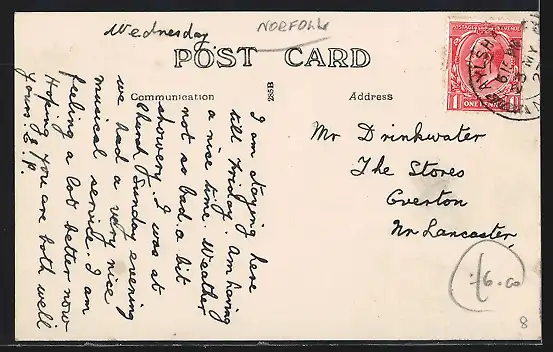 Wednesday
NORFOLK
POST CARD
Communication
288B
Address
I am staying here
till Friday. Am having
a nice time. Weather
not so bad. a bit
showery. I was at
Church Sunday evening
we had a very nice
musical service. I am
feeling a lot better now
Hoping you are both well
Yours. E. P.
AYLSHAM
MY
ONE PENNY
1
Mr Drinkwater
The Stores
Overton
Nr Lancaster,
£6.00
8